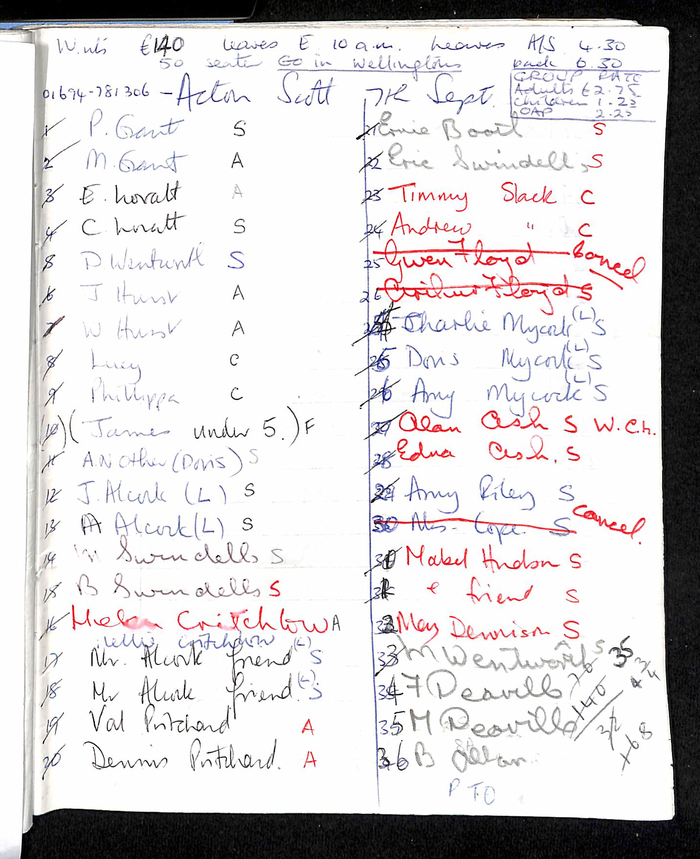 W.nts £140 leaves E 10 a.m. leaves A/S 4.30
50 seater Go in Wellingtons back 6.30
01694-781306 - Acton Scott 7th Sept.
GROUP RATE
Adults £2.75
Children 1.25
OAP 2.25
1 P. Grant S
2 M. Grant A
3 E. Lovatt A
4 C. Lovatt S
5 D Wentworth S
6 J Hurst A
7 W Hurst A
8 Lucy C
9 Phillippa C
(10) (James under 5.) F
11 A.N Other (Doris) S
12 J. Alcock (L) S
13 A Alcock (L) S
14 Swindells S
15 B Swindells S
16 Helen Critchlow A
Nellie Critchlow (L)
17 Mr. Alcock friend S
18 Mr Alcock friend (L) S
19 Val Pritchard A
20 Dennis Pritchard. A
21 Ernie Booth S
22 Eric Swindells S
23 Timmy Slack C
24 Andrew " C
25 Gwen Floyd Cancel
26 Floyd S
Charlie Mycock (L) S
25 Doris Mycock (L) S
26 Amy Mycock (L) S
Alan Ash S W.Ch.
28 Edna Ash. S
29 Amy Riley S
30 Mrs. Cope. S Cancel.
Mabel Hudson S
& friend S
May Dennison S
33 M Wentworth S 35
34 F Deavills
35 M Deavills
36 B Allan
140
168
PTO